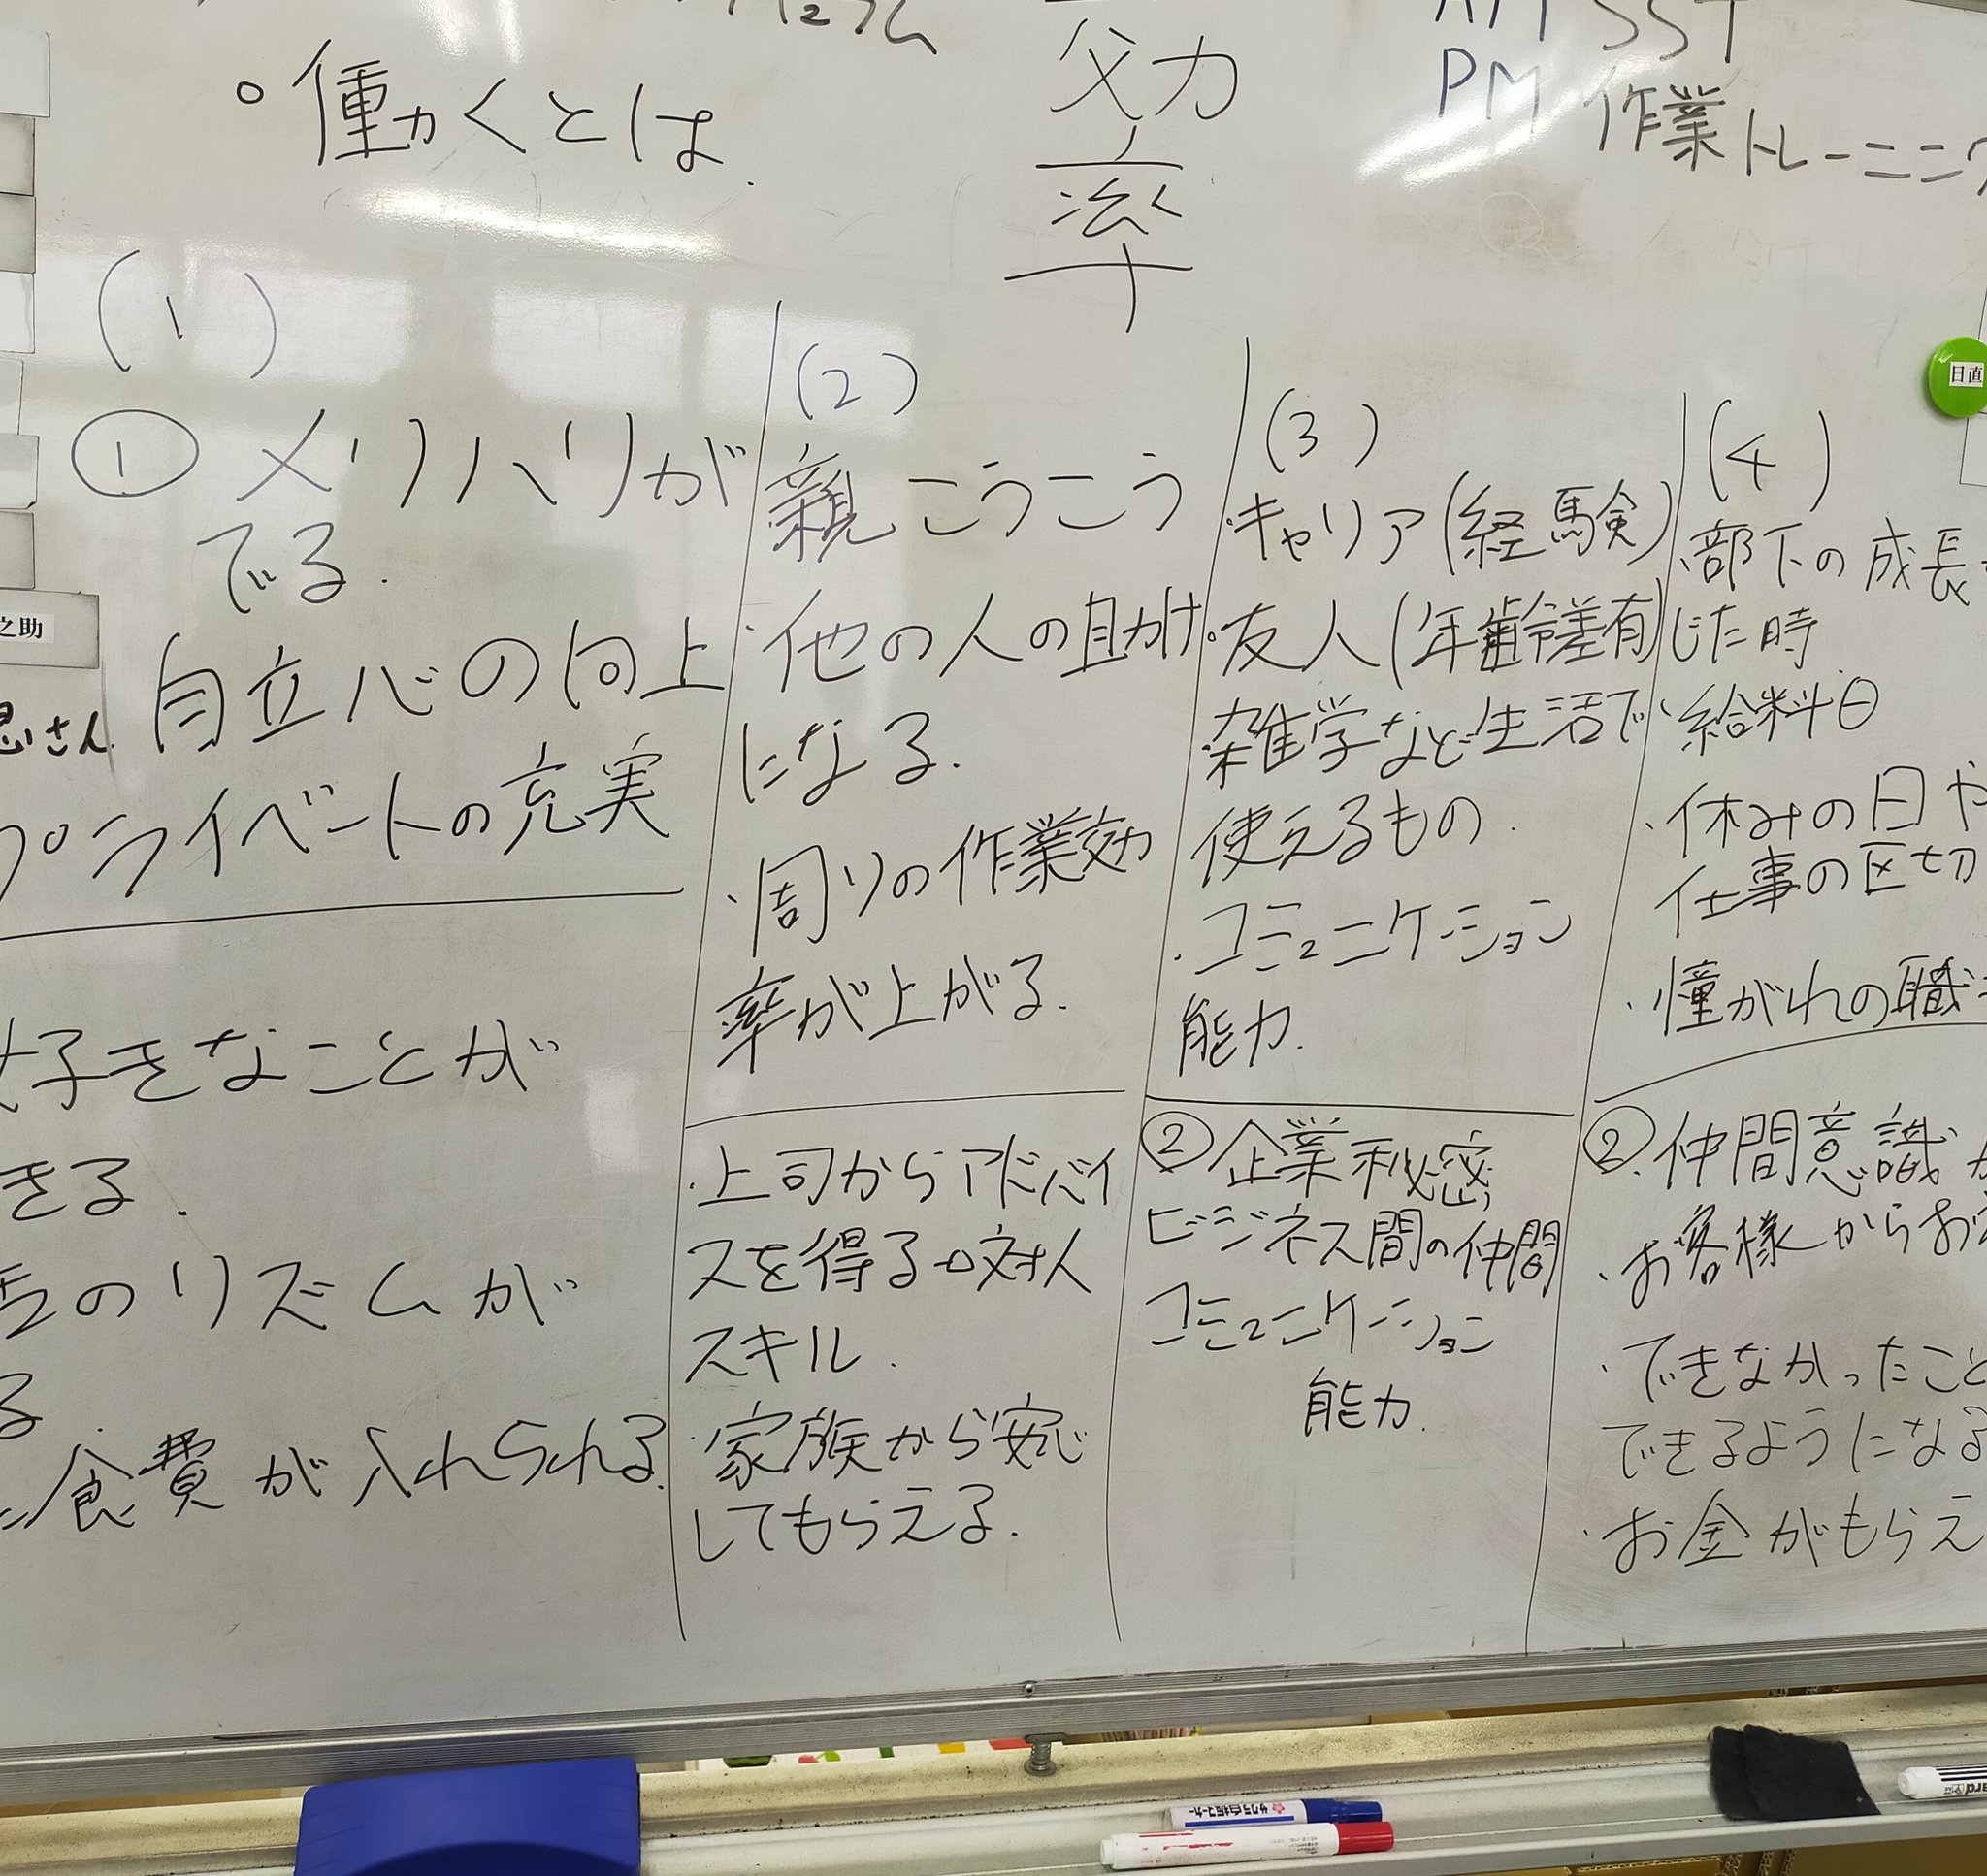 SST
PM 作業トレーニン
効
率
。働くとは
日直
(1)
① メリハリが
でる.
自立心の向上
プライベートの充実
之助
さん
好きなことが
きる.
のリズムが
る
食費が入れられる.
(2)
親こうこう
・他の人の助け
になる.
・周りの作業効
率が上がる.
・上司からアドバイ
スを得る→対人
スキル.
・家族から安心
してもらえる.
(3)
・キャリア(経験)
・友人(年齢差有)
・雑学など生活で
使えるもの.
・コミュニケーション
能力.
② 企業秘密
ビジネス間の仲間
コミュニケーション
能力.
(4)
・部下の成長
じた時.
・給料日
・休みの日や
仕事の区切
・憧がれの職
②.仲間意識が
・お客様からお
・できなかったこと
できるようになる
・お金がもらえ